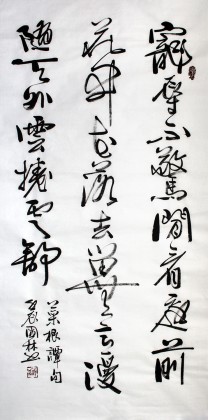 寵辱不驚閒看庭前
花開花落去留無意漫
隨天外雲捲雲舒
菜根譚句
國林